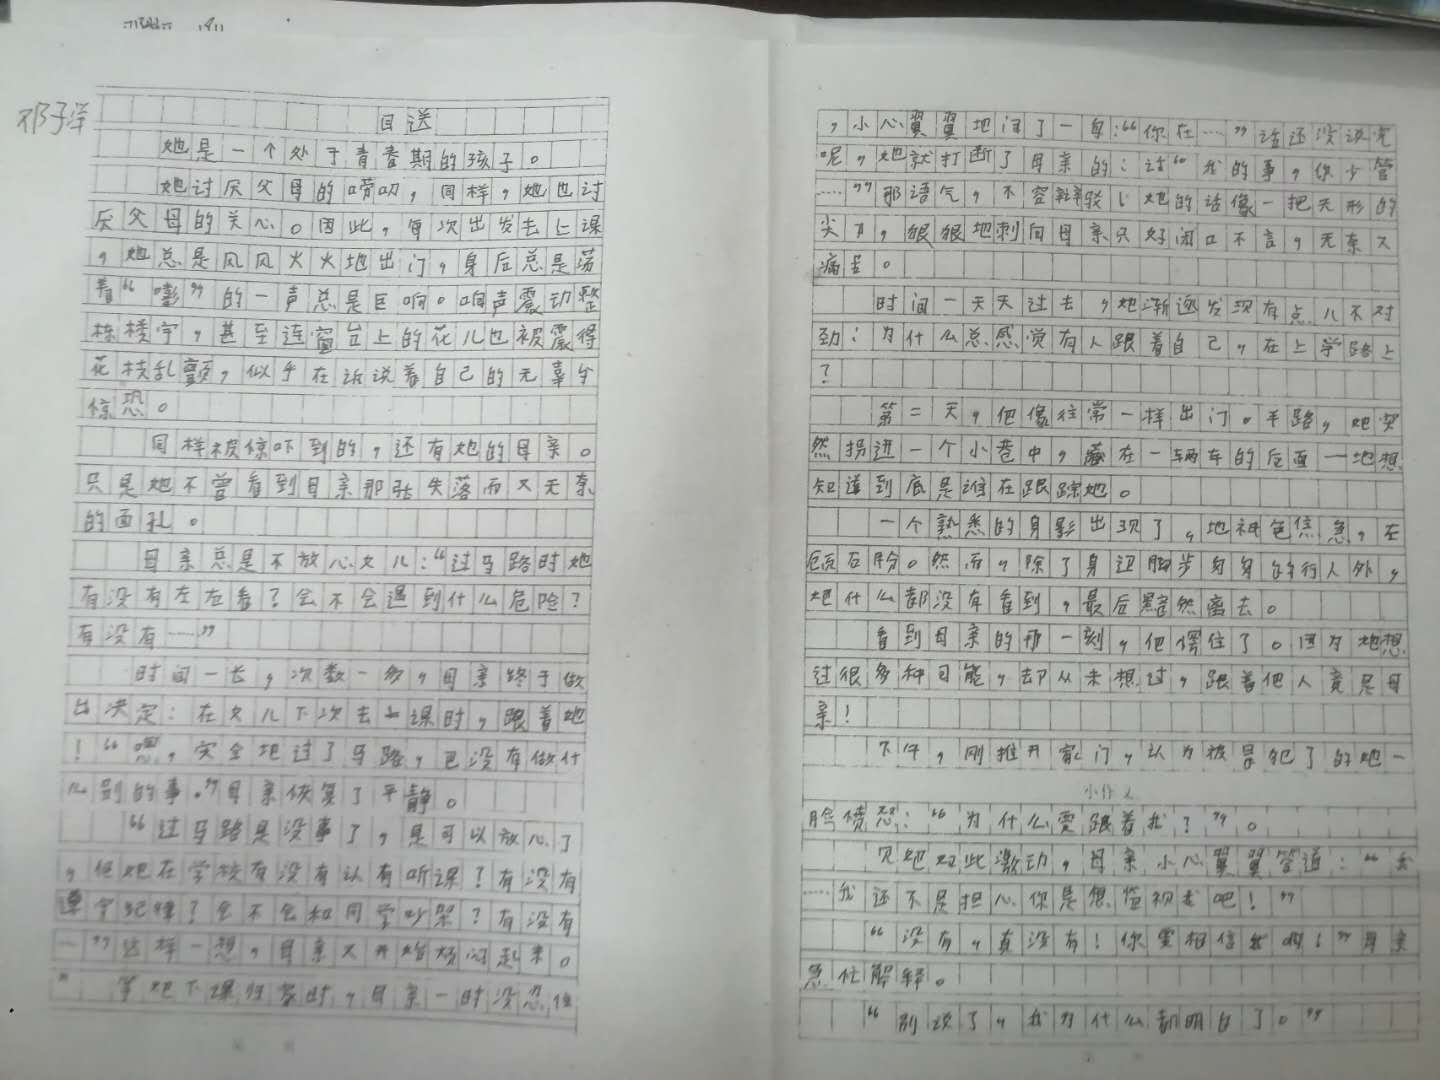 邓子洋
目送
她是一个处于青春期的孩子。
她讨厌父母的唠叨，同样，她也讨
厌父母的关心。因此，每次出发去上课
，她总是风风火火地出门，身后总是荡
着“嘭”的一声总是巨响。响声震动整
栋楼宇，甚至连窗台上的花儿也被震得
花枝乱颤，似乎在诉说着自己的无辜与
惊恐。
同样被惊吓到的，还有她的母亲。
只是她不曾看到母亲那张失落而又无奈
的面孔。
母亲总是不放心女儿：“过马路时她
有没有左右看？会不会遇到什么危险？
有没有……”
时间一长，次数一多，母亲终于做
出决定：在女儿下次去上课时，跟着她
！“嗯，安全地过了马路，也没有做什
么别的事。”母亲恢复了平静。
“过马路是没事了，是可以放心了
，但她在学校有没有认有听课？有没有
遵守纪律？会不会和同学吵架？有没有
…”这样一想，母亲又开始烦闷起来。
” 等她下课归家时，母亲一时没忍住
，小心翼翼地问了一句：“你在……”话还没说完
呢，她就打断了母亲的：话“我的事，你少管
……”那语气，不容辩驳！她的话像一把无形的
尖刀，狠狠地刺向母亲只好闭口不言，无奈又
痛苦。
时间一天天过去，她渐逐发现有点儿不对
劲：为什么总感觉有人跟着自己，在上学路上
？
第二天，他像往常一样出门。半路，她突
然拐进一个小巷中，藏在一辆车的后面一地想
知道到底是谁在跟踪她。
一个熟悉的身影出现了，她神色焦急，左
顾右盼。然而，除了身边脚步匆匆的行人外，
她什么都没有看到，最后黯然离去。
看到母亲的那一刻，他愣住了。因为她想
过很多种可能，却从未想过，跟着他人竟是母
亲！
下午，刚推开家门，认为被冒犯了的她一
小作文
脸愤怒：“为什么要跟着我？”。
见她如此激动，母亲小心翼翼答道：“我
……我还不是担心你是想监视我吧！”
“没有，真没有！你要相信我啊！”母亲
急忙解释。
“别说了，我为什么都明白了。”